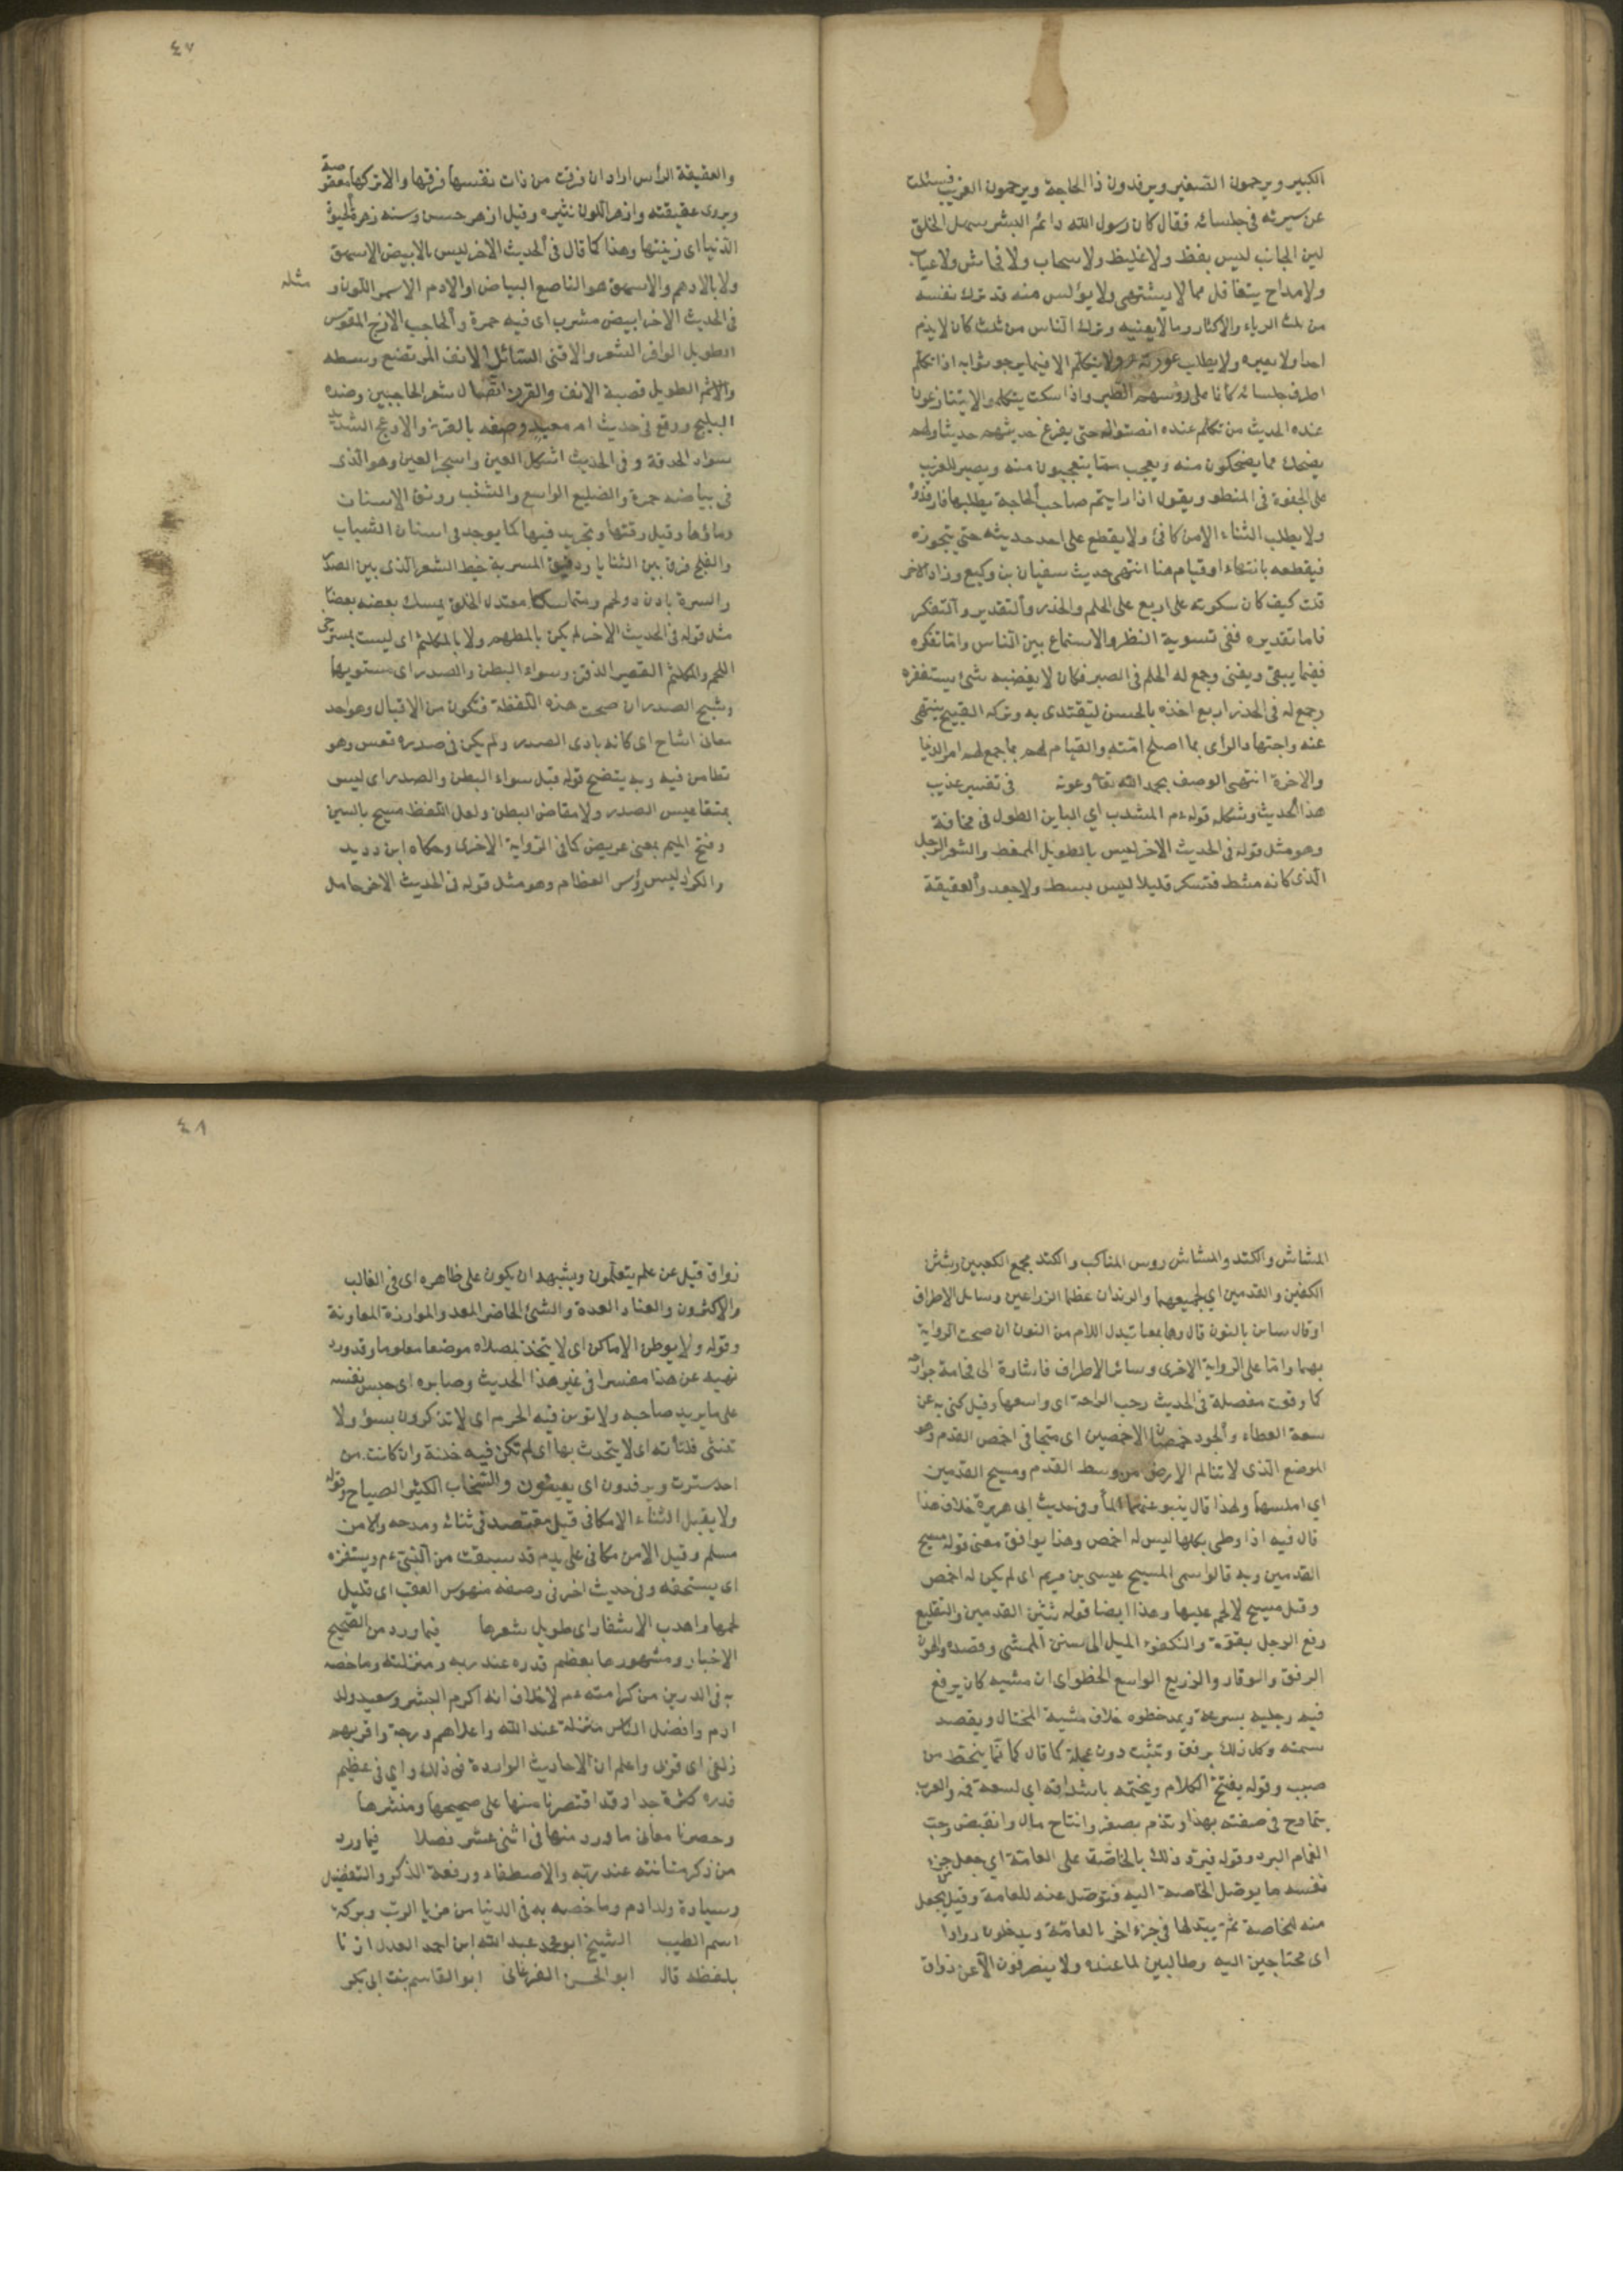 الكبير ويرحمون الصغير ويرفدون ذا الحاجة ويرحمون الغريب فسئلت
عن سيرته فى جلسائه فقال كان رسول الله دائم البشر سهل الخلق
لين الجانب ليس بفظ ولا غليظ ولا سخاب ولا فحاش ولا عياب
ولا مداح يتغافل مما لا يشتهى ولا يؤلس منه قد ترك نفسه
من ثلث الرياء والاكثار وما لا يعنيه وترك الناس من ثلث كان لا يذم
احدا ولا يعيره ولا يطلب عورته ولا يتكلم الا فيما يرجو ثوابه اذا تكلم
اطرق جلسائه كانما على رؤسهم الطير واذا سكت يتكلموا لا يتنازعون
عنده الحديث من تكلم عنده انصتوا له حتى يفرغ حديثهم حديث اولهم
يضحك مما يضحكون منه ويعجب مما يتعجبون منه ويصبر للغريب
على الجفوة فى المنطق ويقول اذا رايتم صاحب الحاجة يطلبها فارفدوه
ولا يطلب الثناء الا من كافئ ولا يقطع على احد حديثه حتى يتجوزه
فيقطعه بانتهاء او قيام هنا انتهى حديث سفيان بن وكيع وزاد الاخر
قلت كيف كان سكوته على اربع على الحلم والحذر والتقدير والتفكر
فاما تقديره ففى تسوية النظر والاستماع بين الناس واما تفكره
ففيما يبقى ويفنى وجمع له الحلم فى الصبر فكان لا يغضبه شئ يستفزه
وجمع له فى الحذر اربع اخذه بالحسن ليقتدى به وتركه القبيح لينتهى
عنه واجتهاد الراى بما اصلح امته والقيام لهم بما جمع لهم امر الدنيا
والاخرة انتهى الوصف بحمد الله تعا وعونه فى تفسير غريب
هذا الحديث وشكله قوله ءم المشذب اي الباين الطول فى نحافة
وهو مثل قوله فى الحديث الاخر ليس بالطويل الممغط والشعر الرجل
الذى كانه مشط فتكسر قليلا ليس بسبط ولا جعد والعقيقة
٤٧
والعقيقة الراس اراد ان فرقت من ذات نفسها فرقها والا تركها معقوصة
ويروى عقيقته وازهر اللون نيّره وقيل ازهر حسن ومنه زهرة الحيوة
الدنيا اى زينتها وهذا كما قال فى الحديث الاخر ليس بالابيض الامهق
ولا بالادهم والامهق هو الناصع البياض والادم الاسمر اللون و
مثله
فى الحديث الاخر ابيض مشرب اى فيه حمرة والحاجب الازج المقوس
الطويل الوافر الشعر والاقنى السائل الانف المرتفع وسطه
والاشم الطويل قصبة الانف والقرن اتصال شعر الحاجبين وضده
البلج ووقع فى حديث ام معبد وصفه بالقرن والادعج الشديد
سواد الحدقة وفى الحديث اشكل العين واسجر العين وهو الذى
فى بياضه حمرة والضليع الواسع والشنب رونق الاسنان
وماؤها وقيل رقتها وتحزيز فيها كما يوجد فى اسنان الشباب
والفلج فرق بين الثنايا ودقيق المسربة خيط الشعر الذى بين الصدر
والسرة بادن ذو لحم ومتماسك معتدل الخلق يمسك بعضه بعضا
مثل قوله فى الحديث الاخر لم يكن بالمطهم ولا بالمكلثم اى ليست بمسترخى
اللحم والمكلثم القصير الذقن وسواء البطن والصدر اى مستويها
ومشيح الصدر ان صحت هذه اللفظة فتكون من الاقبال وهو احد
معانى اشاح اى كانه بادى الصدر ولم يكن فى صدره قعس وهو
تطامن فيه وبه يتضح قوله قبل سواء البطن والصدر اى ليس
بمتقاعس الصدر ولا مفاض البطن ولعل اللفظ مسيح بالسين
وفتح الميم بمعنى عريض كما فى الرواية الاخرى وحكاه ابن دريد
والكراديس رؤس العظام وهو مثل قوله فى الحديث الاخر جليل
المشاش والكتد والمشاش روس المناكب والكتد مجمع الكتفين وشثن
الكفين والقدمين اي لحيمهما والزندان عظما الزراعين وسائل الاطراف
او قال سائن بالنون قال وهما بمعنا تبدل اللام من النون ان صحت الرواية
بهما واما على الرواية الاخرى وسائر الاطراف فاشارة الى فخامة جوارحه
كما وقعت مفصلة فى الحديث رحب الراحة اى واسعها وقيل كنى به عن
سعة العطاء والجود خمصان الاخمصين اى متجافى اخمص القدم وهو
الموضع الذى لا تناله الارض من وسط القدم ومسيح القدمين
اي املسهما ولهذا قال ينبو عنهما الماء وفى حديث ابى هريرة خلاف هذا
قال فيه اذا وطى بكلها ليس له اخمص وهذا يوافق معنى قوله مسيح
القدمين وبه قالوا سمى المسيح عيسى بن مريم اى لم يكن له اخمص
وقيل مسيح لا لحم عليها وهذا ايضا قوله شثن القدمين والتقلع
رفع الرجل بقوة والتكفوء الميل الى سنن الممشى وقصده والهون
الرفق والوقار والزريع الواسع الخطو اى ان مشيه كان يرفع
فيه رجليه بسرعة ويمد خطوه خلاف مشية المختال ويقصد
سمته وكل ذلك برفق وتثبت دون عجلة كما قال كانما ينحط من
صبب وقوله يفتتح الكلام ويختمه باشداقه اي لسعة فمه والعرب
تتمادح فى صفته بهذا وتذم بصغر وانتاح مال وانقبض وحب
الغمام البرد وقوله فيرد ذلك بالخاصة على العامة اي جعل من جزء
نفسه ما يوصل الخاصة اليه فتوصل عنه للعامة وقيل يجعل
منه للخاصة ثم يبدلها فى جزء اخر بالعامة ويدخلون روادا
اى محتاجين اليه وطالبين لما عنده ولا ينصرفون الا عن ذواق
٤٨
زواق قيل عن علم يتعلمون ويشبه ان يكون على ظاهره اى فى الغالب
والاكثرون والعتاد العدة والشئ الحاضر المعد والموازرة المعاونة
وقوله ولا يوطن الاماكن اى لا يتخذ لمصلاه موضعا معلوما وقد ورد
نهيه عن هذا مفسرا فى غير هذا الحديث وصابره اى حبس نفسه
على ما يريد صاحبه ولا توبن فيه الحرم اى لا تذكرون بسوء ولا
تنثى فلتاته اى لا يتحدث بها اى لم تكن فيه فلتة وان كانت من
احد سترت ويرفدون اى يعينون والسخاب الكثير الصياح وقوله
ولا يقبل الثناء الا مكافى قيل مقتصد فى ثنائه ومدحه والا من
مسلم وقيل الا من مكافى على يد قد سبقت من النبى ءم ويستفزه
اى يستخفه وفى حديث اخر فى وصفه منهوس العقب اى قليل
لحمها واهدب الاشفار اى طويل شعرها فيما ورد من الصحيح
الاخبار ومشهورها بعظم قدره عند ربه ومنزلته وما خصه
به فى الدرين من كرامته ءم لا خلاف انه اكرم البشر وسيد ولد
ادم وافضل الناس منزلة عند الله واعلاهم درجة واقربهم
زلفى اى قربى واعلم ان الاحاديث الواردة فى ذلك واي فى عظيم
قدره كثرة جدا وقد اقتصرنا منها على صحيحها ومنتشرها
وحصرنا معانى ما ورد منها فى اثنى عشر فصلا فيما ورد
من ذكر مكانته عند ربه والاصطفاء ورفعة الذكر والتفضيل
وسيادة ولد ادم وما خصه به فى الدنيا من مزايا الرتب وبركة
اسم الطيب الشيخ ابو محمد عبد الله ابن احمد العدل اذنا
بلفظه قال ابو الحسن الفرغانى ابو القاسم بنت ابى بكر